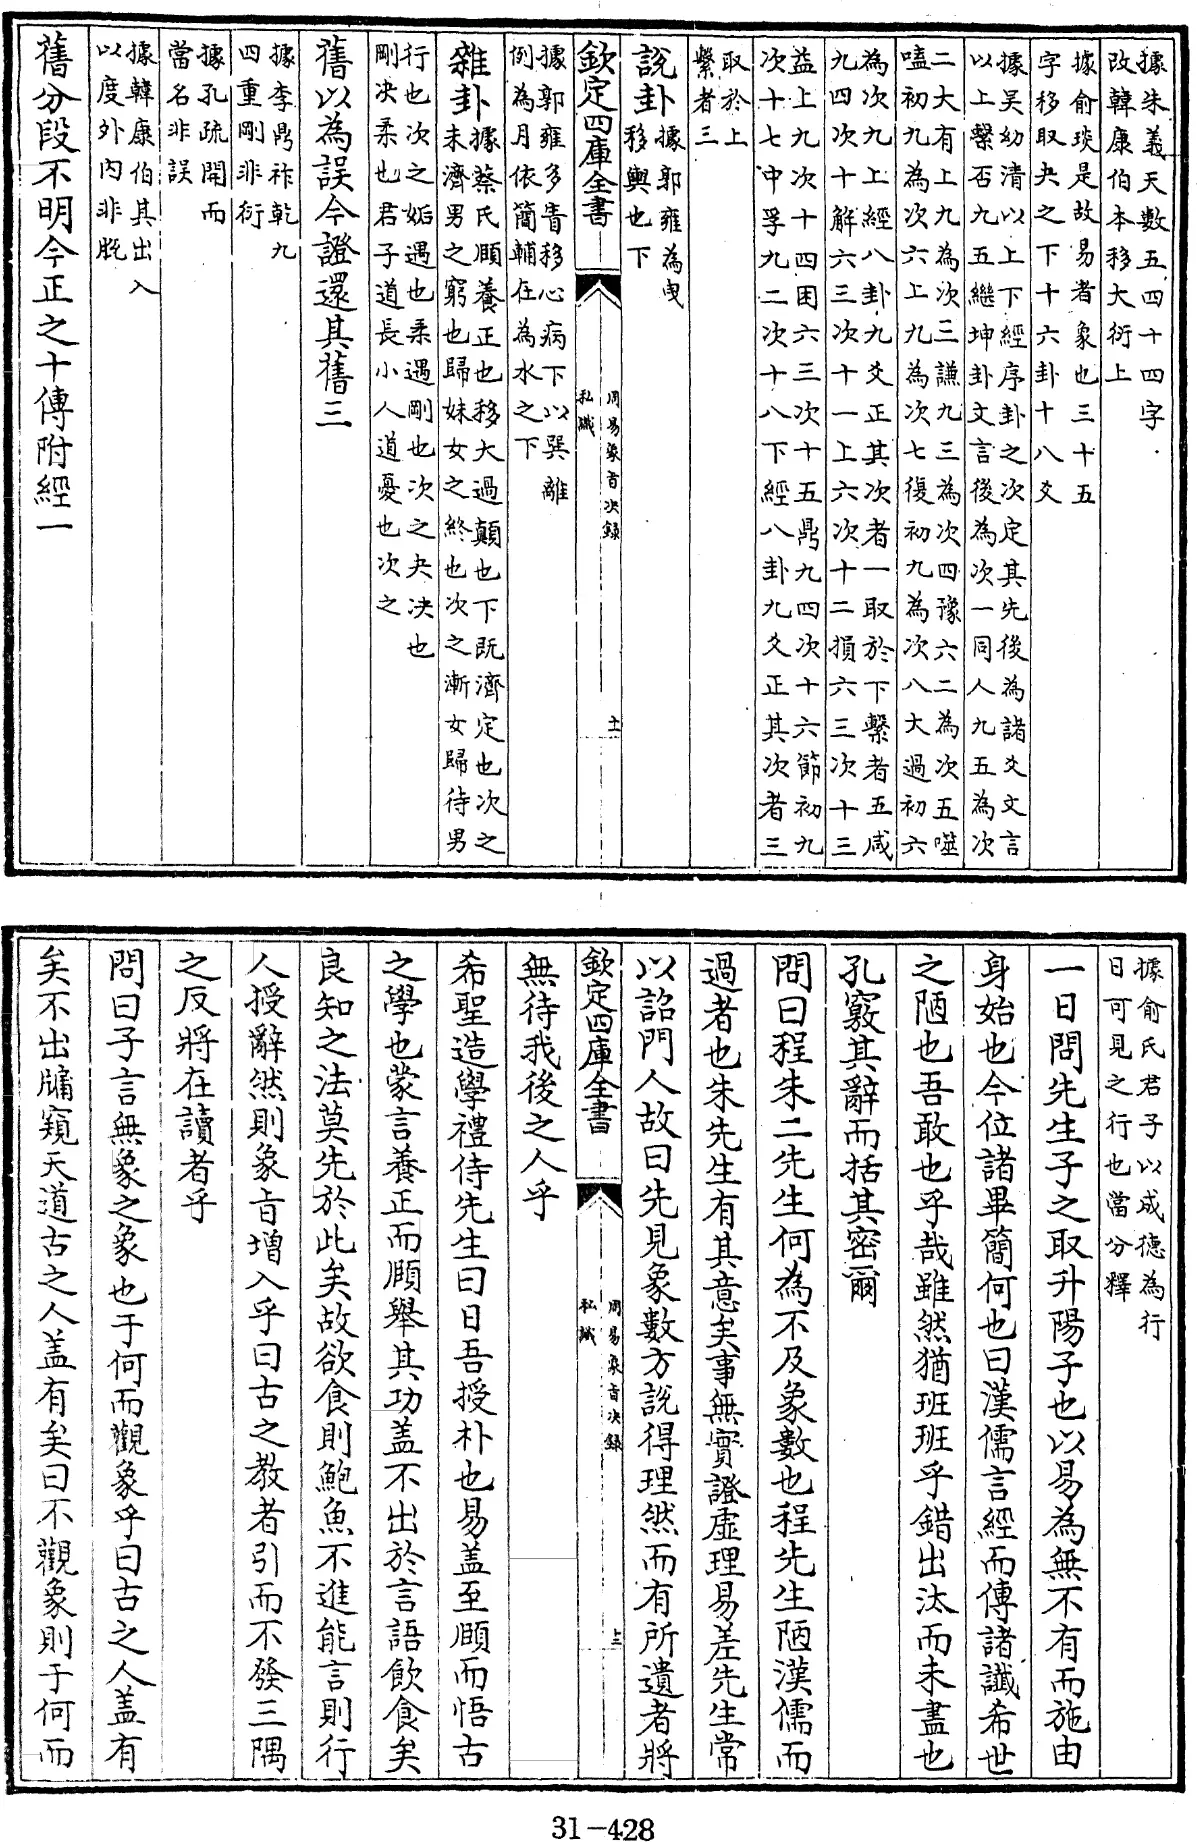 據朱義天數五四十四字
改韓康伯本移大衍上
據俞琰是故易者象也三十五
字移取夬之下十六卦十八爻
據吳幼清以上下經序卦之次定其先後為諸爻文言
以上繫否九五繼坤卦文言後為次一同人九五為次
二大有上九為次三謙九三為次四豫六二為次五噬
嗑初九為次六上九為次七復初九為次八大過初六
為次九上經八卦九爻正其次者一取於下繫者五咸
九四次十解六三次十一上六次十二損六三次十三
益上九次十四困六三次十五鼎九四次十六節初九
次十七中孚九二次十八下經八卦九爻正其次者三
取於上
繫者三
說卦據郭雍為曳
移輿也下
欽定四庫全書
周易象旨决録
私識
十一
據郭雍多眚移心病下以巽離
例為月依簡輔在為水之下
雜卦據蔡氏頤養正也移大過顛也下既濟定也次之
未濟男之窮也歸妹女之終也次之漸女歸待男
行也次之姤遇也柔遇剛也次之夬决也
剛决柔也君子道長小人道憂也次之
舊以為誤今證還其舊三
據李鼎祚乾九
四重剛非衍
據孔疏開而
當名非誤
據韓康伯其出入
以度外内非脫
舊分段不明今正之十傳附經一
據俞氏君子以成德為行
日可見之行也當分釋
一日問先生子之取升陽子也以易為無不有而施由
身始也今位諸畢簡何也曰漢儒言經而傳諸讖希世
之陋也吾敢也乎哉雖然猶班班乎錯出汰而未盡也
孔竅其辭而括其密爾
問曰程朱二先生何為不及象數也程先生陋漢儒而
過者也朱先生有其意矣事無實證虛理易差先生常
以詔門人故曰先見象數方說得理然而有所遺者將
欽定四庫全書
周易象旨决録
私識
十二
無待我後之人乎
希聖造學禮侍先生曰日吾授朴也易蓋至頤而悟古
之學也蒙言養正而頤舉其功蓋不出於言語飲食矣
良知之法莫先於此矣故欲食則鮑魚不進能言則行
人授辭然則象旨增入乎曰古之教者引而不發三隅
之反將在讀者乎
問曰子言無象之象也于何而觀象乎曰古之人蓋有
矣不出牖窺天道古之人蓋有矣曰不觀象則于何而
31-428